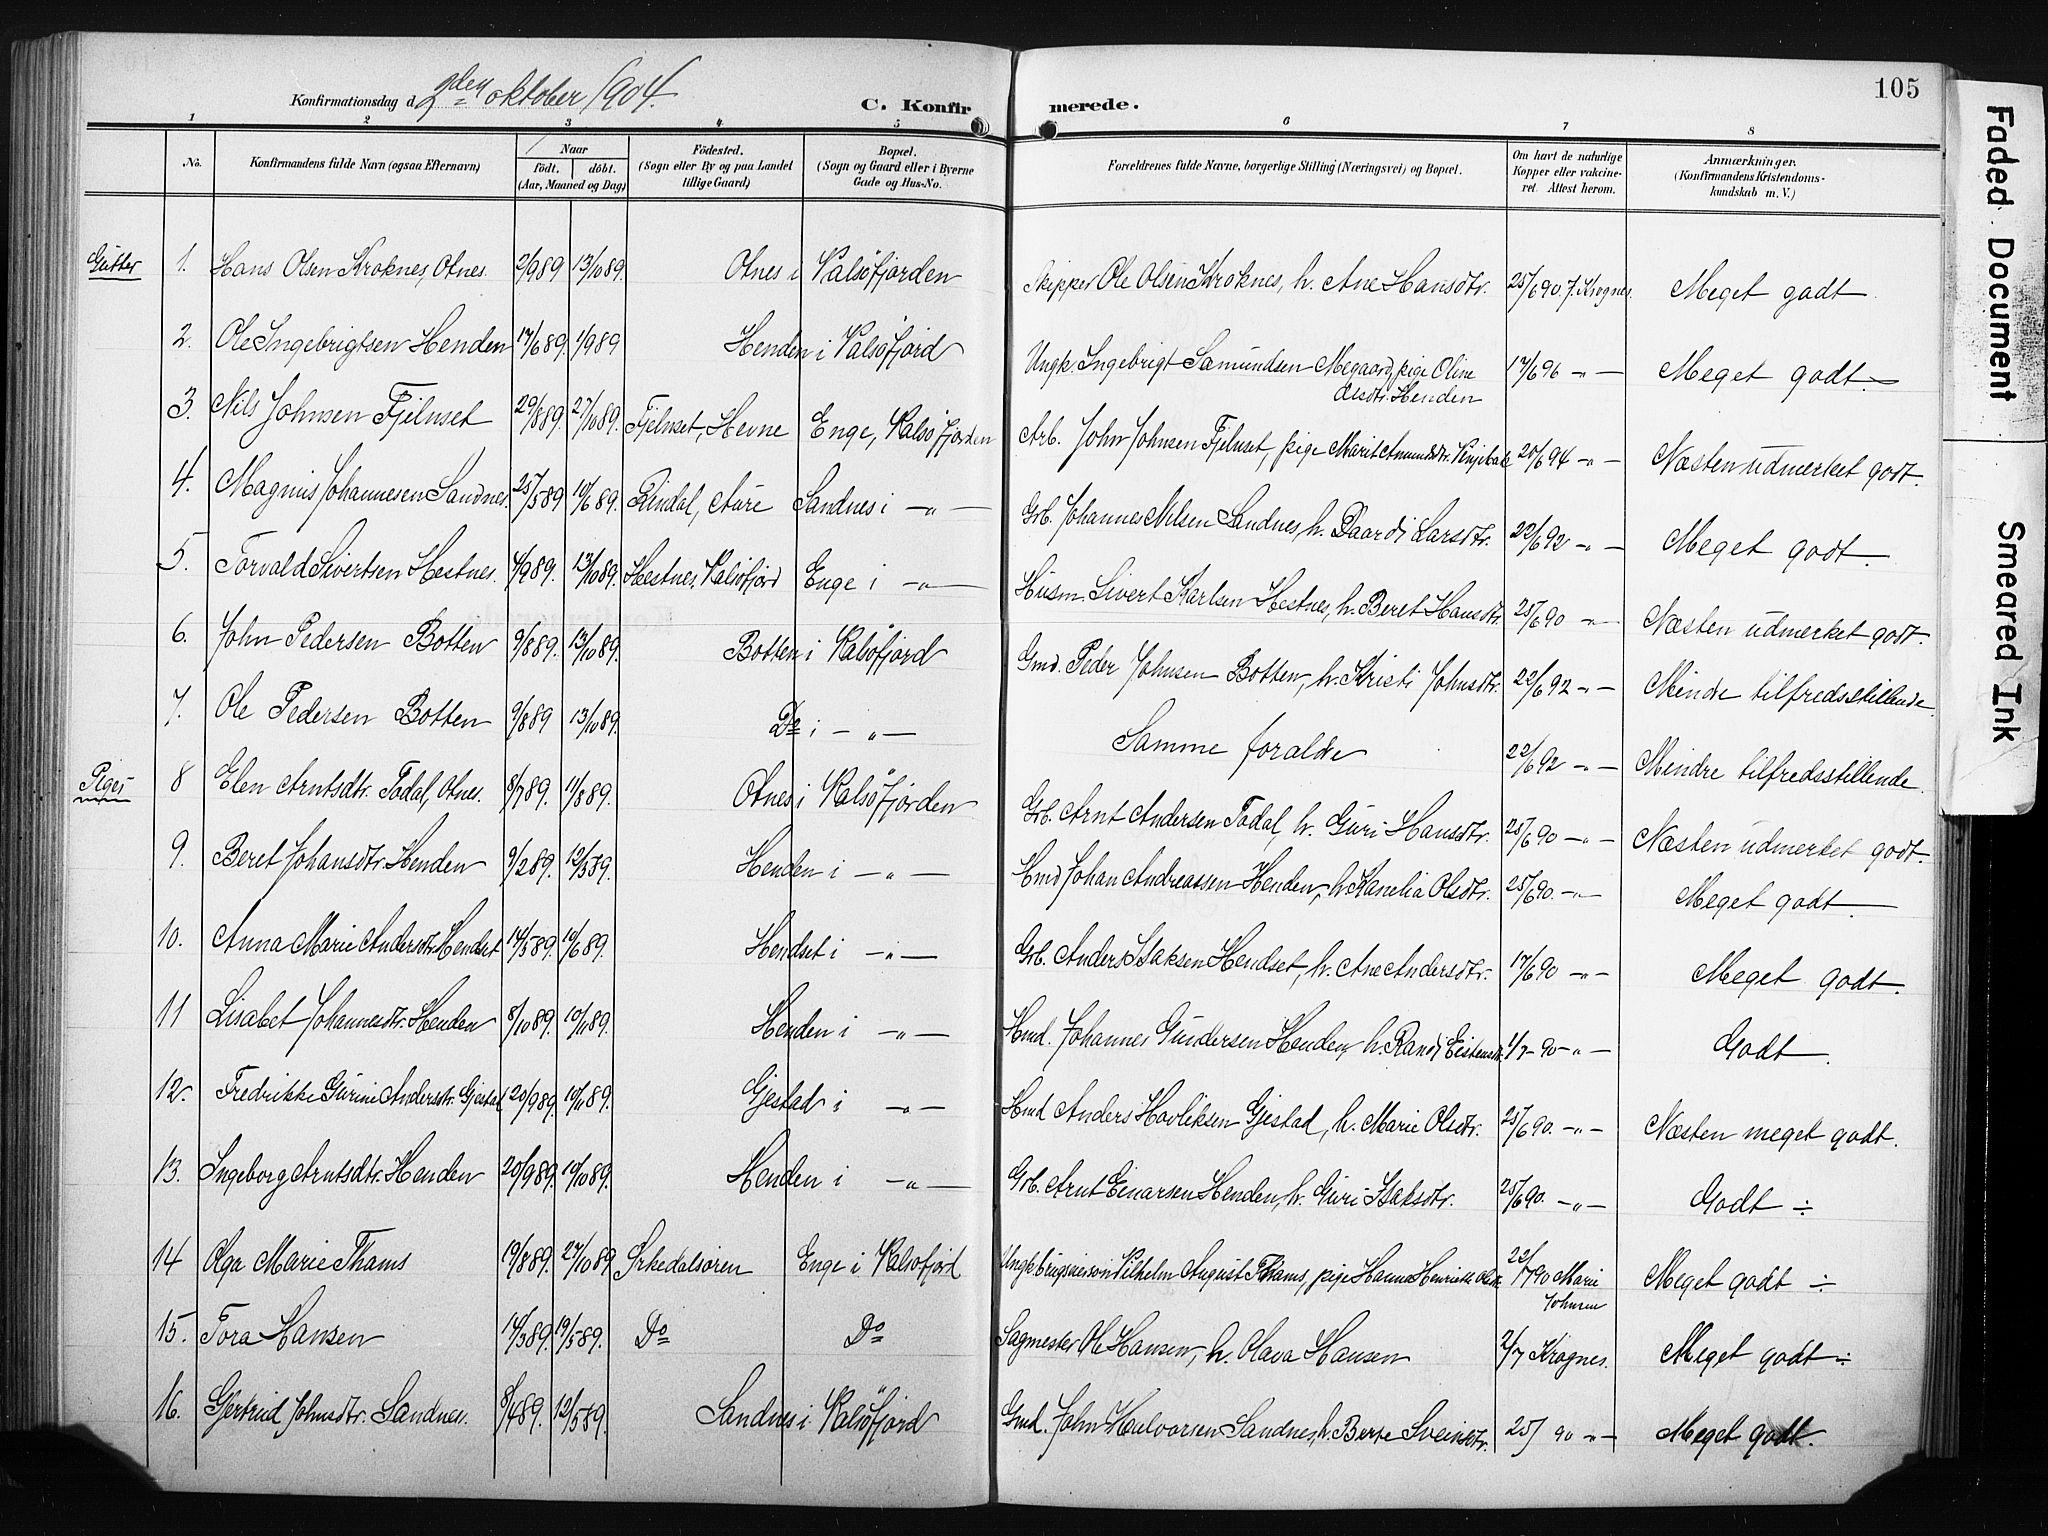 105
Konfirmationsdag d. 2den oktober 1904.
C. Konfirmerede.
1 2 3 4 5 6 7 8
No. Konfirmandens fulde Navn (ogsaa Efternavn) Naar født. døbt. (Aar, Maaned og Dag) Fødested. (Sogn eller By og paa Landet tillige Gaard) Bopæl. (Sogn og Gaard eller i Byerne Gade og Hus-No. Forældrenes fulde Navne, borgerlige Stilling (Næringsvei) og Bopæl. Om havt de naturlige Kopper eller vakcineret. Attest herom. Anmærkninger. (Konfirmandens Kristendomskundskab m. V.)
Gutter 1. Hans Olsen Kroknes, Otnes. 2/9 89 13/10 89. Otnes i Valsöfjorden Skipper Ole Olsen Kroknes, h. Ane Hansdtr. 25/6 90 J. Krognes. Meget godt.
2. Ole Ingebrigtsen Henden 17/6 89. 1/9 89 Henden i Valsöfjord Ungk. Ingebrigt Samundsen Megaard, pige Oline Olsdtr. Henden 17/6 96 -„- Meget godt
3. Nils Johnsen Fjelnset 29/8 89. 27/10 89. Fjelnset, Hevne Enge, Valsöfjorden Arb. John Johnsen Fjelnset, pige Marit Amundsdtr. 20/6 94 -„- Næsten udmerket godt.
4. Magnus Johannesen Sandnes. 25/5 89 10/6 89. Rindal, Aure Sandnes i -„- Grb. Johannes Nilsen Sandnes, h. Baardi Larsdtr. 22/6 92 -„- Meget godt.
5. Torvald Sivertsen Hestnes. 4/9 89. 13/10 89. Hestnes, Valsöfjord Enge i -„- Husm. Sivert Karlsen Hestnes, h. Beret Hansdtr. 25/6 90 -„- Næsten udmerket godt.
6. John Pedersen Botten 9/8 89. 13/10 89. Botten i Valsöfjord Gmd. Peder Johnsen Botten, h. Kristi Johnsdtr. 22/6 92 -„- Mindre tilfredsstillende.
7. Ole Pedersen Botten 9/8 89 13/10 89. Do i -„- Samme foralde 22/6 92 -„- Mindre tilfredsstillende.
Piger 8 Elen Arntsdtr. Todal, Otnes. 8/7 89. 11/8 89. Otnes i Valsöfjorden Grb. Arnt Andersen Todal, h. Guri Hansdtr. 25/6 90 -„- Næsten udmerket godt.
9. Beret Johansdtr. Henden 9/2 89. 12/3 89. Henden i -„- Hmd Johan Andreassen Henden, h. Kanelia Olsdtr. 25/6 90. -„- Meget godt
10. Anna Marie Andersdtr. Hendset 14/5 89. 10/6 89. Hendset i -„- Grb. Anders Isaksen Hendset, h. Ane Andersdtr. 17/6 90 -„- Meget godt.
11 Lisabet Johannesdtr. Henden 8/10 89. 10/11 89. Henden i -„- Hmd. Johannes Gundersen Henden, h. Randi Eistensdtr. 1/7-90 -„- Godt.
12. Fredrikke Gurine Andersdtr. Gjestad 20/9 89. 10/11 89. Gjestad i -„- Hmd Anders Havliksen Gjestad, h. Marie Olsdtr. 25/6 90. -„- Næsten meget godt.
13. Ingeborg Arntsdtr. Henden 20/9 89. 10/10 89. Henden i -„- Grb. Arnt Einarsen Henden, h. Guri Isaksdtr. 25/6 90. -„- Godt ÷
14 Olga Marie Thams 19/8 89. 27/10 89 Orkedalsören Enge i Valsöfjord Ungk. Vilhelm August Thams, pige Hanna Henriette 22/7 90 Marie Johnsen Meget godt ÷
15. Tora Hansen 14/3 89. 19/5 89. Do Do Sagmester Ole Hansen, h. Olava Hansen 2/7 Krognes. Meget godt ÷
16. Gjertrud Johnsdtr. Sandnes. 8/4 89. 12/5 89. Sandnes i Valsöfjord Gmd. John Halvorsen Sandnes, h. Berte Sveinsdtr. 25/ 90 -„- Meget godt.
Faded Document
Smeared Ink